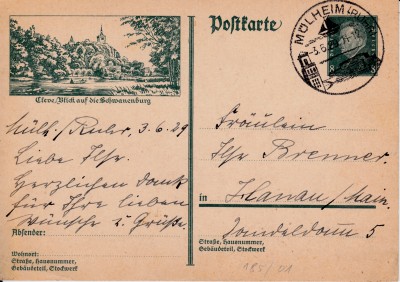 Postkarte
MÜLHEIM (RUHR)
-3.6.29
Cleve, Blick auf die Schwanenburg
Mülh./Ruhr, 3.6.29
Liebe Ilse.
Herzlichen Dank
für Ihre lieben
Wünsche u. Grüße.
Absender:
Wohnort:
Straße, Hausnummer,
Gebäudeteil, Stockwerk
Fräulein
Ilse Brenner
in Hanau/Main.
5
Straße, Hausnummer,
Gebäudeteil, Stockwerk